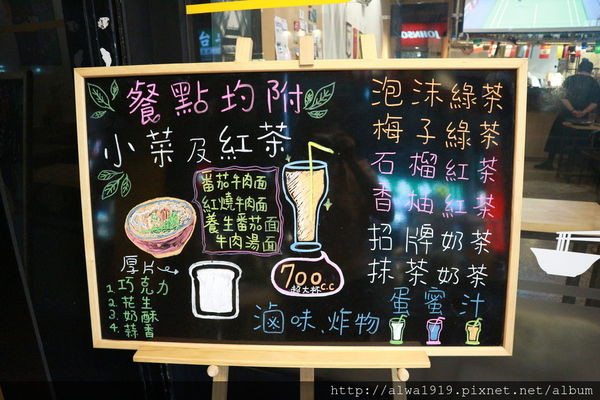 餐點均附
小菜及紅茶
番茄牛肉面
紅燒牛肉面
養生番茄面
牛肉湯面
700c.c
超大杯
厚片
1.巧克力
2.花生
3.奶酥
4.蒜香
滷味.炸物
泡沫綠茶
梅子綠茶
石榴紅茶
香柚紅茶
招牌奶茶
抹茶奶茶
蛋蜜汁
JOHNSON
http://alwa1919.pixnet.net/album